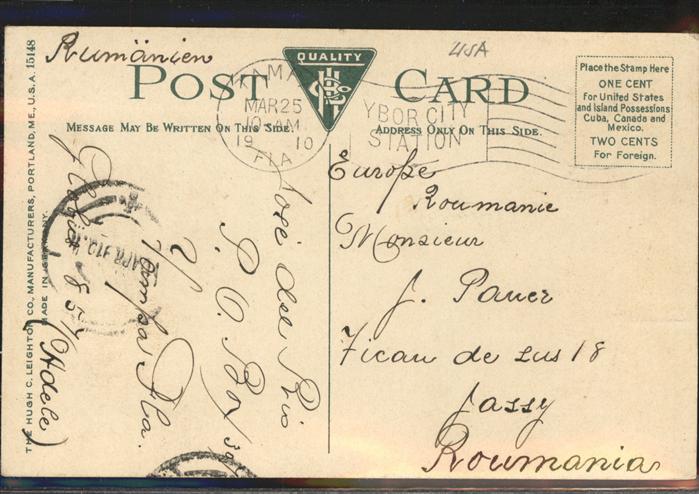 Rumänien
USA
QUALITY
POST CARD
MESSAGE MAY BE WRITTEN ON THIS SIDE.
ADDRESS ONLY ON THIS SIDE.
Place the Stamp Here
ONE CENT
For United States
and Island Possessions
Cuba, Canada and
Mexico.
TWO CENTS
For Foreign.
MAR 25
10 AM
19 10
FLA
YBOR CITY
STATION
THE HUGH C. LEIGHTON CO., MANUFACTURERS, PORTLAND, ME., U.S.A. 15148
MADE IN GERMANY.
José del Rio
P. O. Box
Tampa Fla.
(Adele)
Europe
Roumanie
Monsieur
J. Pauer
Ticau de sus 18
Jassy
Roumania